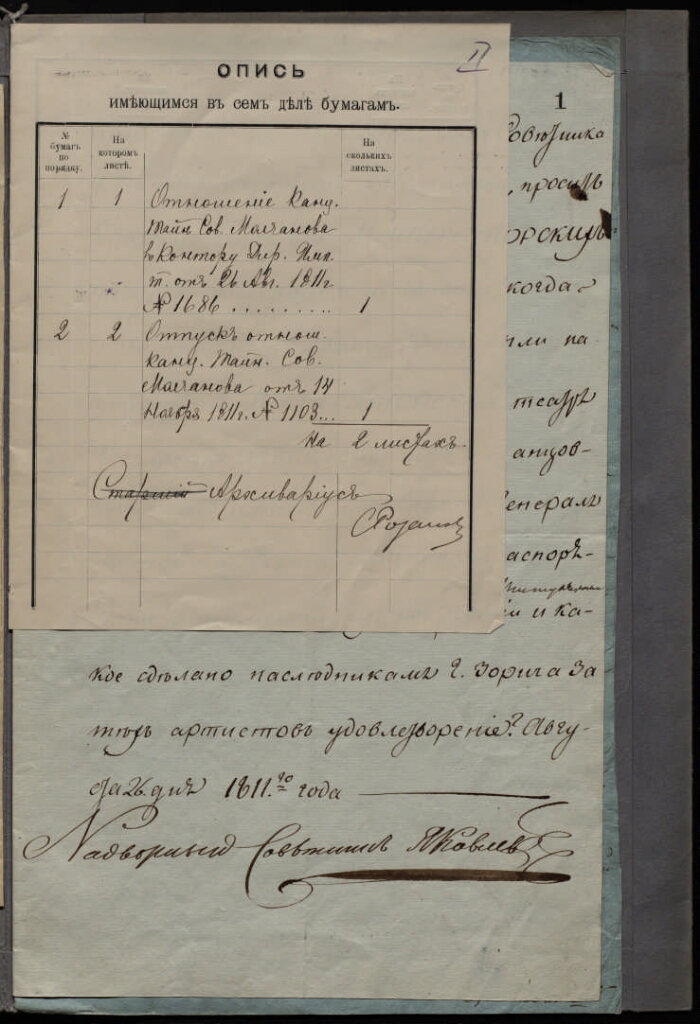 II
ОПИСЬ
имѣющимся въ семъ дѣлѣ бумагамъ.
№
бумагъ
по
порядку.
На
которомъ
листѣ.
На
сколькихъ
листахъ.
1 1 Отношеніе канц.
Тайн. Сов. Молчанова
въ Контору Дир. Имп.
т. отъ 26 Авг. 1811г.
№ 1686 ......... 1
2 2 Отпускъ отнош.
канц. Тайн. Сов.
Молчанова отъ 14
Ноября 1811г. № 1103... 1
На 2 листахъ
Старшій Архиваріусъ
1
, просилъ
когда-
или на-
театръ
анцов-
Генералъ
аспоря-
и и ка-
кое сдѣлано наслѣдникамъ г. Зорича за
тѣхъ артистовъ удовлетвореніе? Авгу-
ста 26. дня 1811.го года
Надворный Совѣтникъ Яковлев